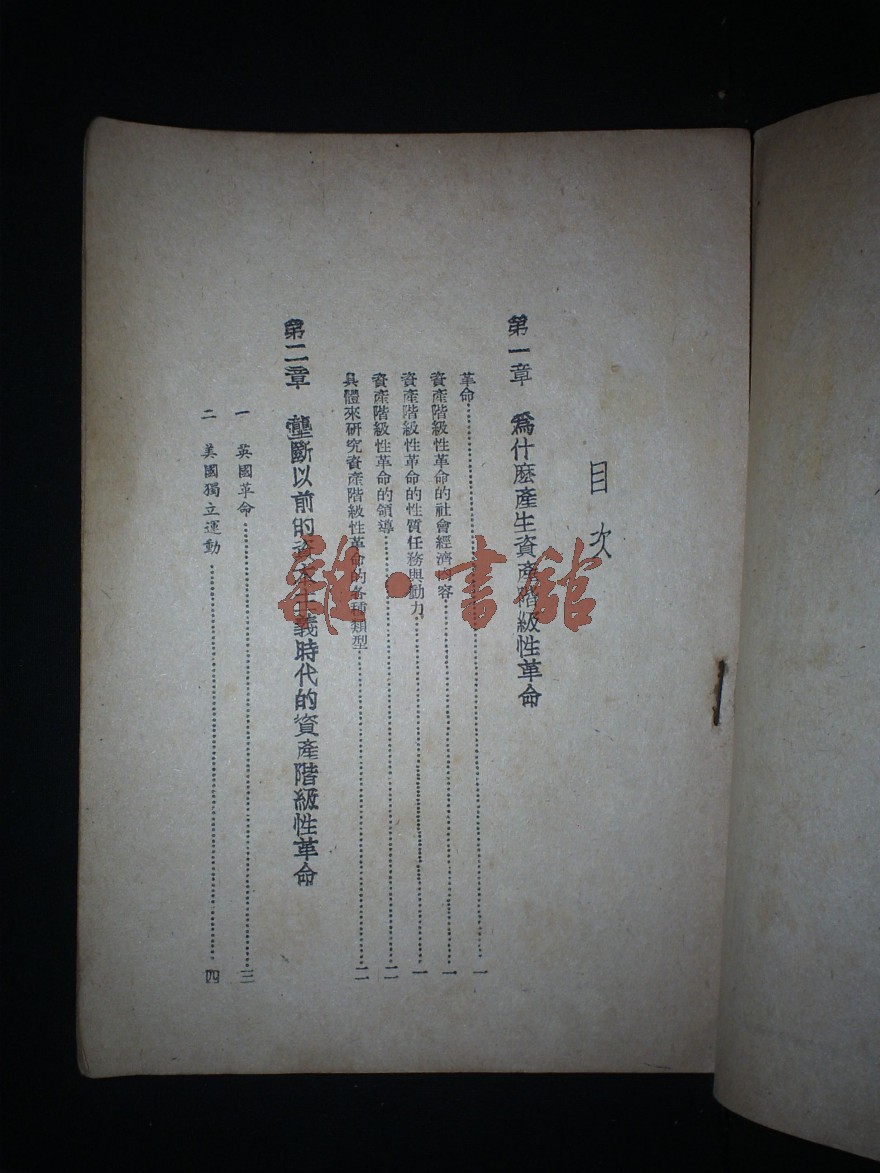 目次
第一章 爲什麽產生資產階級性革命
革命……一
資產階級性革命的社會經濟內容……一
資產階級性革命的性質任務與動力……一
資產階級性革命的領導……二
具體來研究資產階級性革命的各種類型……二
第二章 壟斷以前的資本主義時代的資產階級性革命
一 英國革命……三
二 美國獨立運動……四
雜·書館